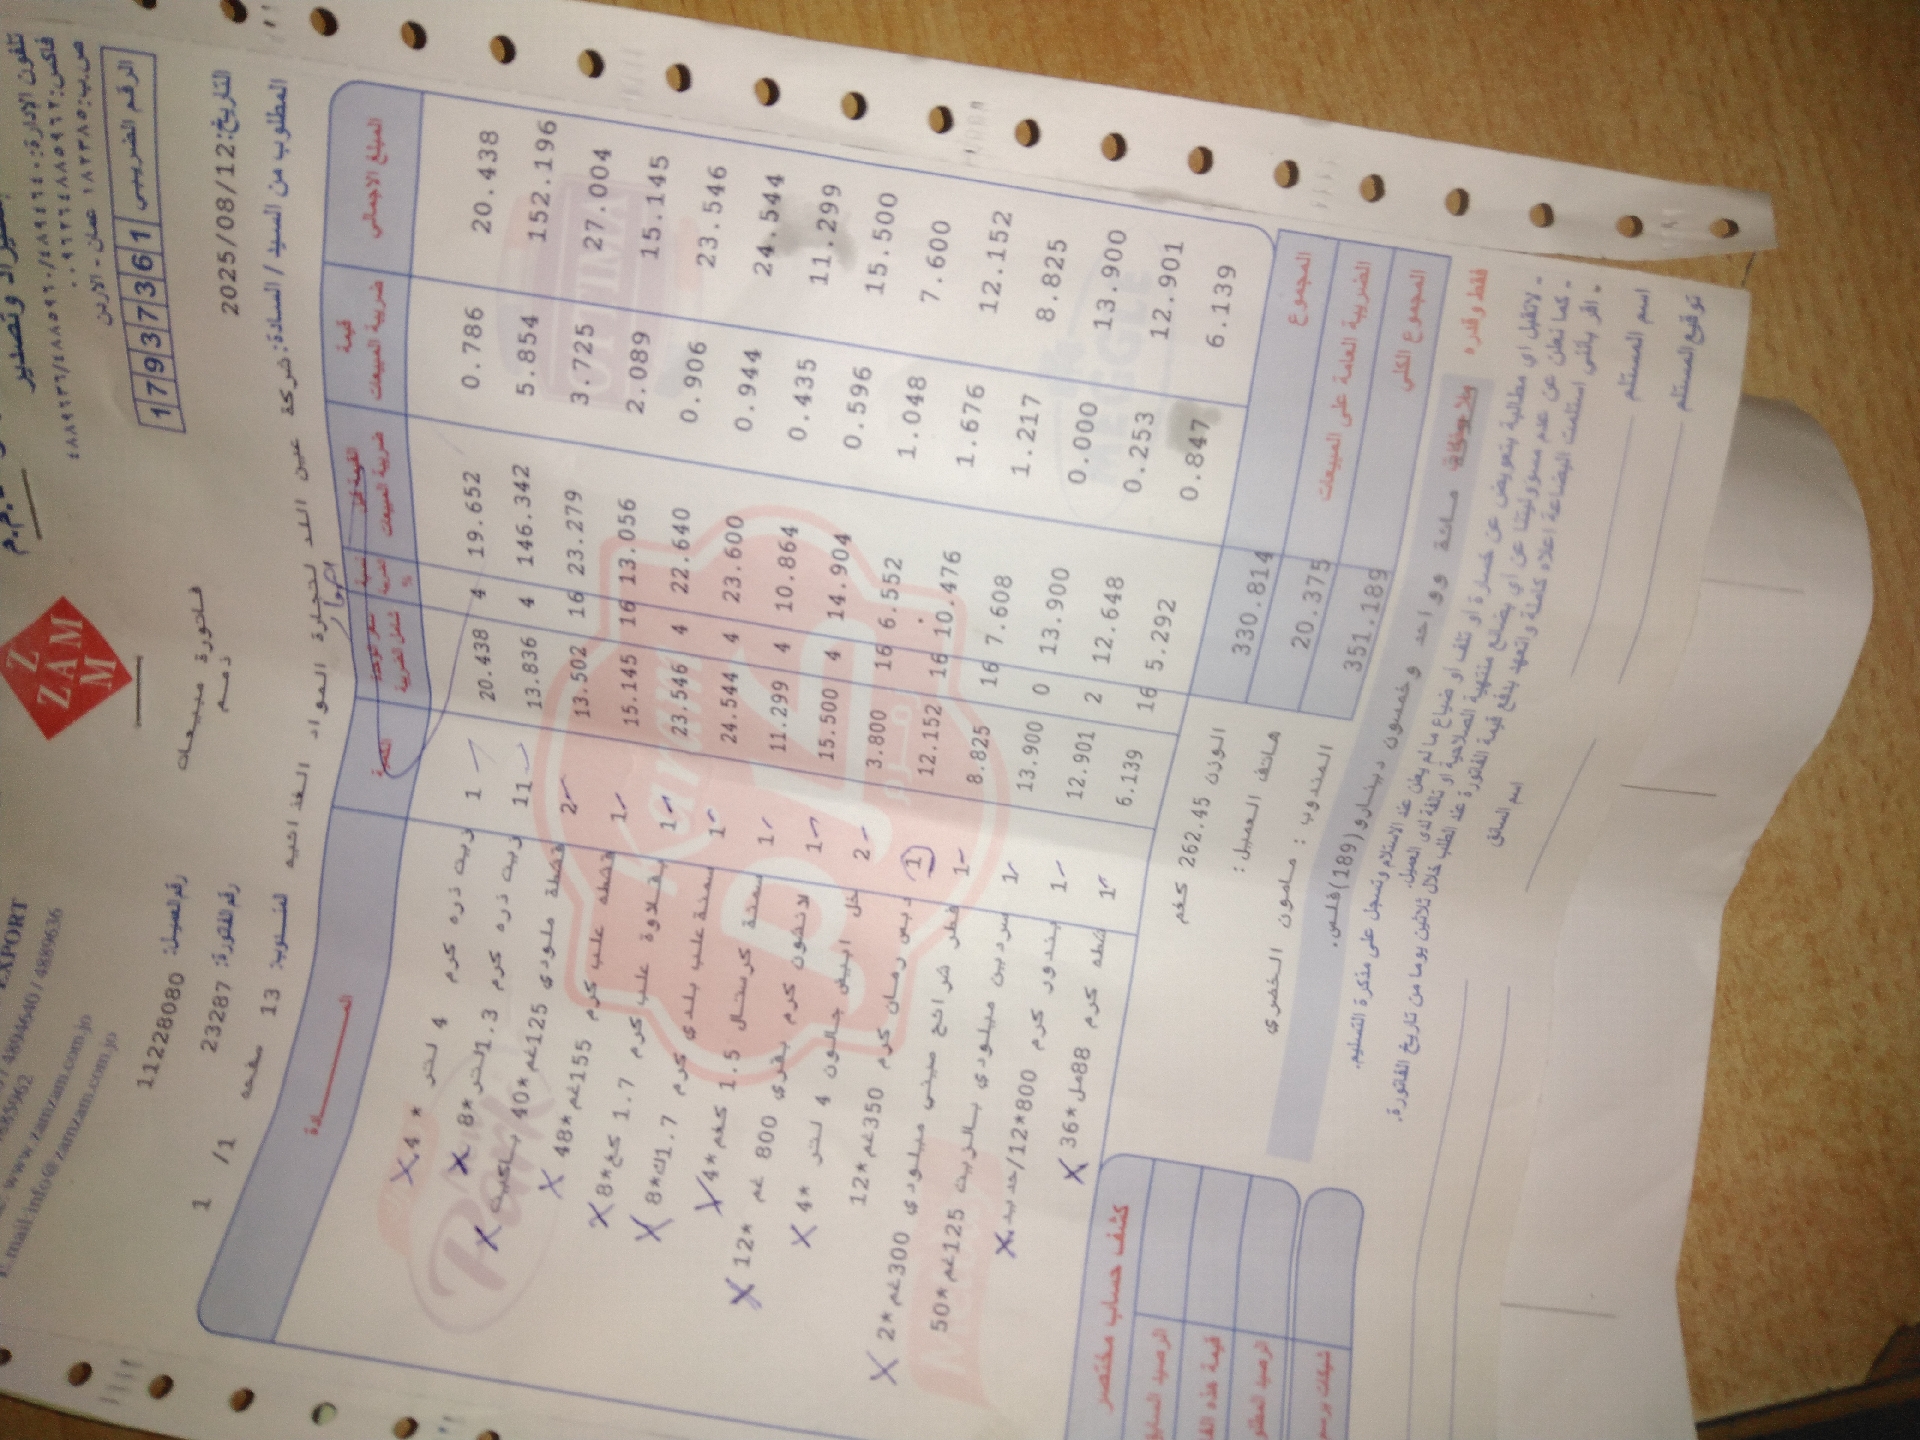 EXPORT
4894640 / 4889636
4885962
www.zamzam.com.jo
E.mail:info@zamzam.com.jo
ZAM ZAM
تلفون الادارة: ٤٨٩٤٦٤٠/
فاكس:
ص.ب: عمان - الاردن
الرقم الضريبي 1 7 9 3 7 3 6 1
فاتورة مبيعات
ذمم
رقم العميل: 11228080
رقم الفاتورة: 23287
لمندوب: 13 صفحه 1 /1
التاريخ: 2025/08/12
المطلوب من السيد / السادة: شركة عين اللد لتجارة المواد الغذائيه
المــــــادة الكمية سعر الوحدة شامل الضريبة نسبة الضريبة % القيمة قبل ضريبة المبيعات قيمة ضريبة المبيعات المبلغ الاجمالي
زيت ذره كرم 4 لتر * 4 1 20.438 4 19.652 0.786 20.438
زيت ذره كرم 1.3لتر *8 11 13.836 4 146.342 5.854 152.196
قشطة ملودي 125غم*40 باكيت 2 13.502 16 23.279 3.725 27.004
قشطه علب كرم 155غم*48 1 15.145 16 13.056 2.089 15.145
بقلاوة علب كرم 1.7 كغ*8 1 23.546 4 22.640 0.906 23.546
سمنة علب بلدي كرم 1.7ك*8 1 24.544 4 23.600 0.944 24.544
سمنة كرستال 1.5 كغم*4 1 11.299 4 10.864 0.435 11.299
لانشون كرم بقري 800 غم *12 1 15.500 4 14.904 0.596 15.500
خل ابيض جالون 4 لتر *4 2 3.800 16 6.552 1.048 7.600
دبس رمان كرم 350غم*12 1 12.152 16 10.476 1.676 12.152
فطر شرائح صيني ميلودي 300غم*2 1 8.825 16 7.608 1.217 8.825
سردين ميلودي بالزيت 125غم*50 1 13.900 0 13.900 0.000 13.900
بندوره كرم 800*12/حديد 1 12.901 2 12.648 0.253 12.901
قشطه كرم 88مل*36 1 6.139 16 5.292 0.847 6.139
الوزن 262.45 كغم
هاتف العميل:
المندوب : مامون الخضري
المجموع 330.814
الضريبة العامة على المبيعات 20.375
المجموع الكلي 351.189
فقط وقدره ثلاثمائة وواحد وخمسون دينار و(189)فلس.
كشف حساب مختصر
الرصيد السابق
قيمة هذه الفا
الرصيد المطلو
شيكات برسم
- لاتقبل اي مطالبة بتعويض عن خسارة او تلف او ضياع ما لم يعلن عند الاستلام وتسجل على مذكرة التسليم.
- كما نعلن عن عدم مسؤوليتنا عن اي بضائع منتهية الصلاحية او تالفة لدى العميل.
- اقر بأنني استلمت البضاعة اعلاه كاملة واتعهد بدفع قيمة الفاتورة عند الطلب خلال ثلاثين يوما من تاريخ الفاتورة.
اسم المستلم
اسم السائق
توقيع المستلم